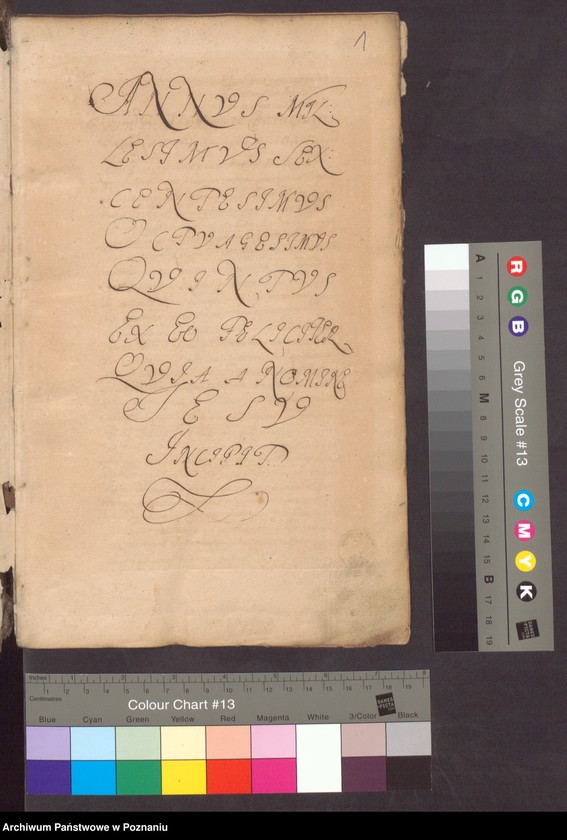 1
ANNVS MIL:
LESIMVS SEX:
CENTESIMVS
OCTVAGESIMVS
QVINTVS
EX EO FELICITER
QVIA A NOMINE
IESV
INCIPIT
A 1 2 3 4 5 6 M 8 9 10 11 12 13 14 15 B 17 18 19
R G B
Grey Scale #13
C M Y K
DANES
PICTA
Inches 1 2 3 4 5 6 7 8
Centimetres 1 2 3 4 5 6 7 8 9 10 11 12 13 14 15 16 17 18 19
Colour Chart #13
DANES
PICTA
.COM
Blue Cyan Green Yellow Red Magenta White 3/Color Black
Archiwum Państwowe w Poznaniu